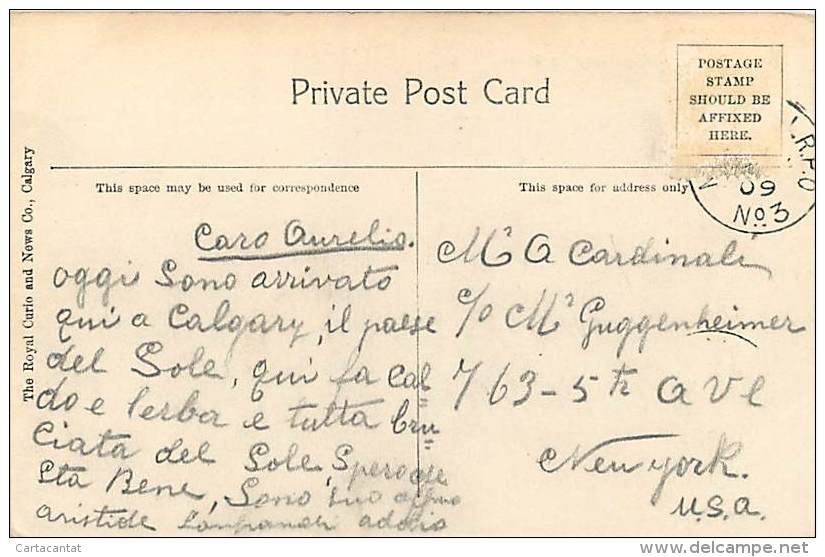 Private Post Card
POSTAGE
STAMP
SHOULD BE
AFFIXED
HERE.
R.P.O
09
No 3
The Royal Curio and News Co., Calgary
This space may be used for correspondence
This space for address only
Caro Aurelio.
oggi Sono arrivato
qui a Calgary, il paese
del Sole, qui fa Cal=
do e lerba e tutta bru=
Ciata del Sole, Spero che
Sta Bene, Sono Suo
aristide
Mr A Cardinali
c/o Mr Guggenheimer
763-5th ave
New york.
U.S.a.
Cartacantat
delcampe.net